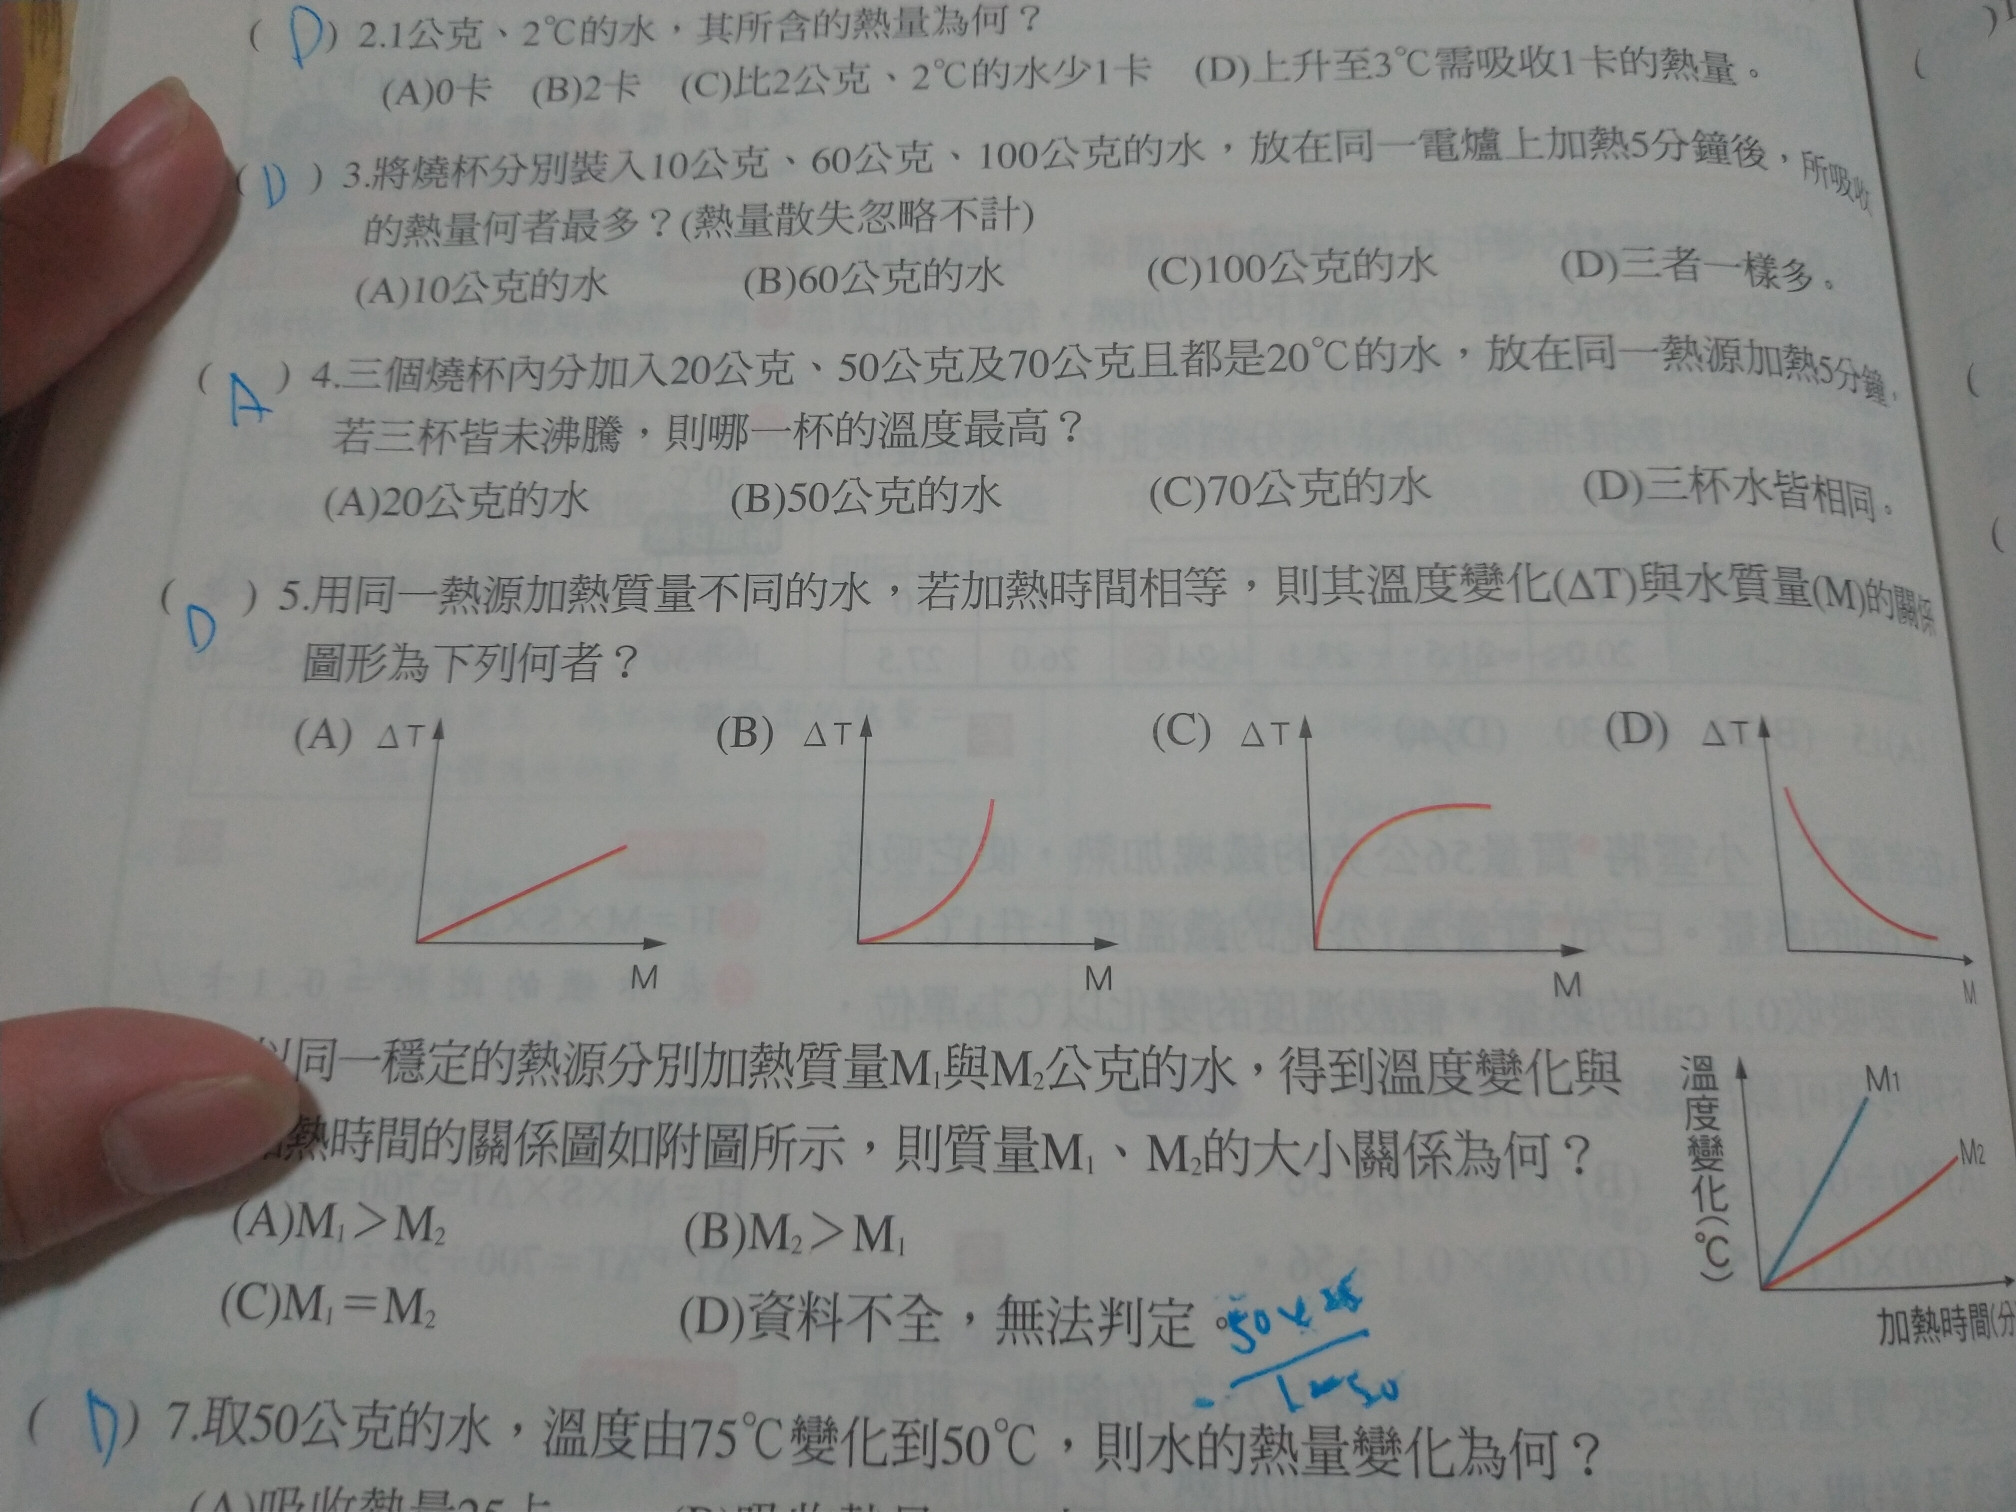 ( D ) 2.1公克、2℃的水，其所含的熱量為何？
(A)0卡 (B)2卡 (C)比2公克、2℃的水少1卡 (D)上升至3℃需吸收1卡的熱量。
( D ) 3.將燒杯分別裝入10公克、60公克、100公克的水，放在同一電爐上加熱5分鐘後，所吸收
的熱量何者最多？(熱量散失忽略不計)
(A)10公克的水 (B)60公克的水 (C)100公克的水 (D)三者一樣多。
( A ) 4.三個燒杯內分加入20公克、50公克及70公克且都是20℃的水，放在同一熱源加熱5分鐘，
若三杯皆未沸騰，則哪一杯的溫度最高？
(A)20公克的水 (B)50公克的水 (C)70公克的水 (D)三杯水皆相同。
( D ) 5.用同一熱源加熱質量不同的水，若加熱時間相等，則其溫度變化(ΔT)與水質量(M)的關係
圖形為下列何者？
(A) ΔT (B) ΔT (C) ΔT (D) ΔT
M M M M
以同一穩定的熱源分別加熱質量M₁與M₂公克的水，得到溫度變化與
熱時間的關係圖如附圖所示，則質量M₁、M₂的大小關係為何？
(A)M₁＞M₂ (B)M₂＞M₁
(C)M₁＝M₂ (D)資料不全，無法判定。
溫度變化(℃)
M1
M2
加熱時間(分
50×25
( D ) 7.取50公克的水，溫度由75℃變化到50℃，則水的熱量變化為何？
(A)吸收熱量25卡